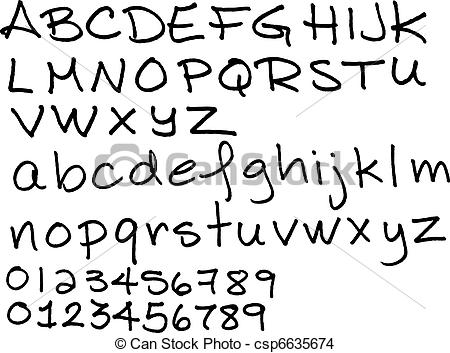 ABCDEFGHIJK
LMNOPQRSTU
VWXYZ
abcdefghijklm
nopqrstuvwxyz
0123456789
0123456789
© Can Stock Photo - csp6635674